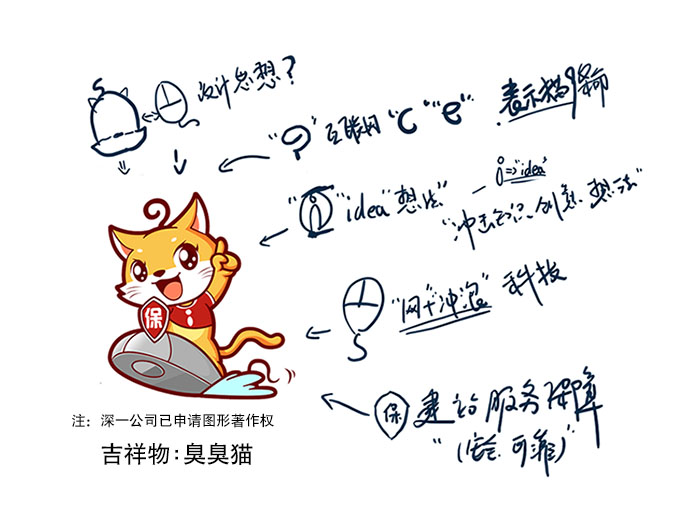 设计思想？
"e" 互联网 "C" "e" 表示猫9条命
"i" "idea" "想法" — i => "idea"
"冲击知识、创意、想法"
"网+冲浪" 科技
保 建站服务保障
"(安全 可靠)"
保
注：深一公司已申请图形著作权
吉祥物：臭臭猫